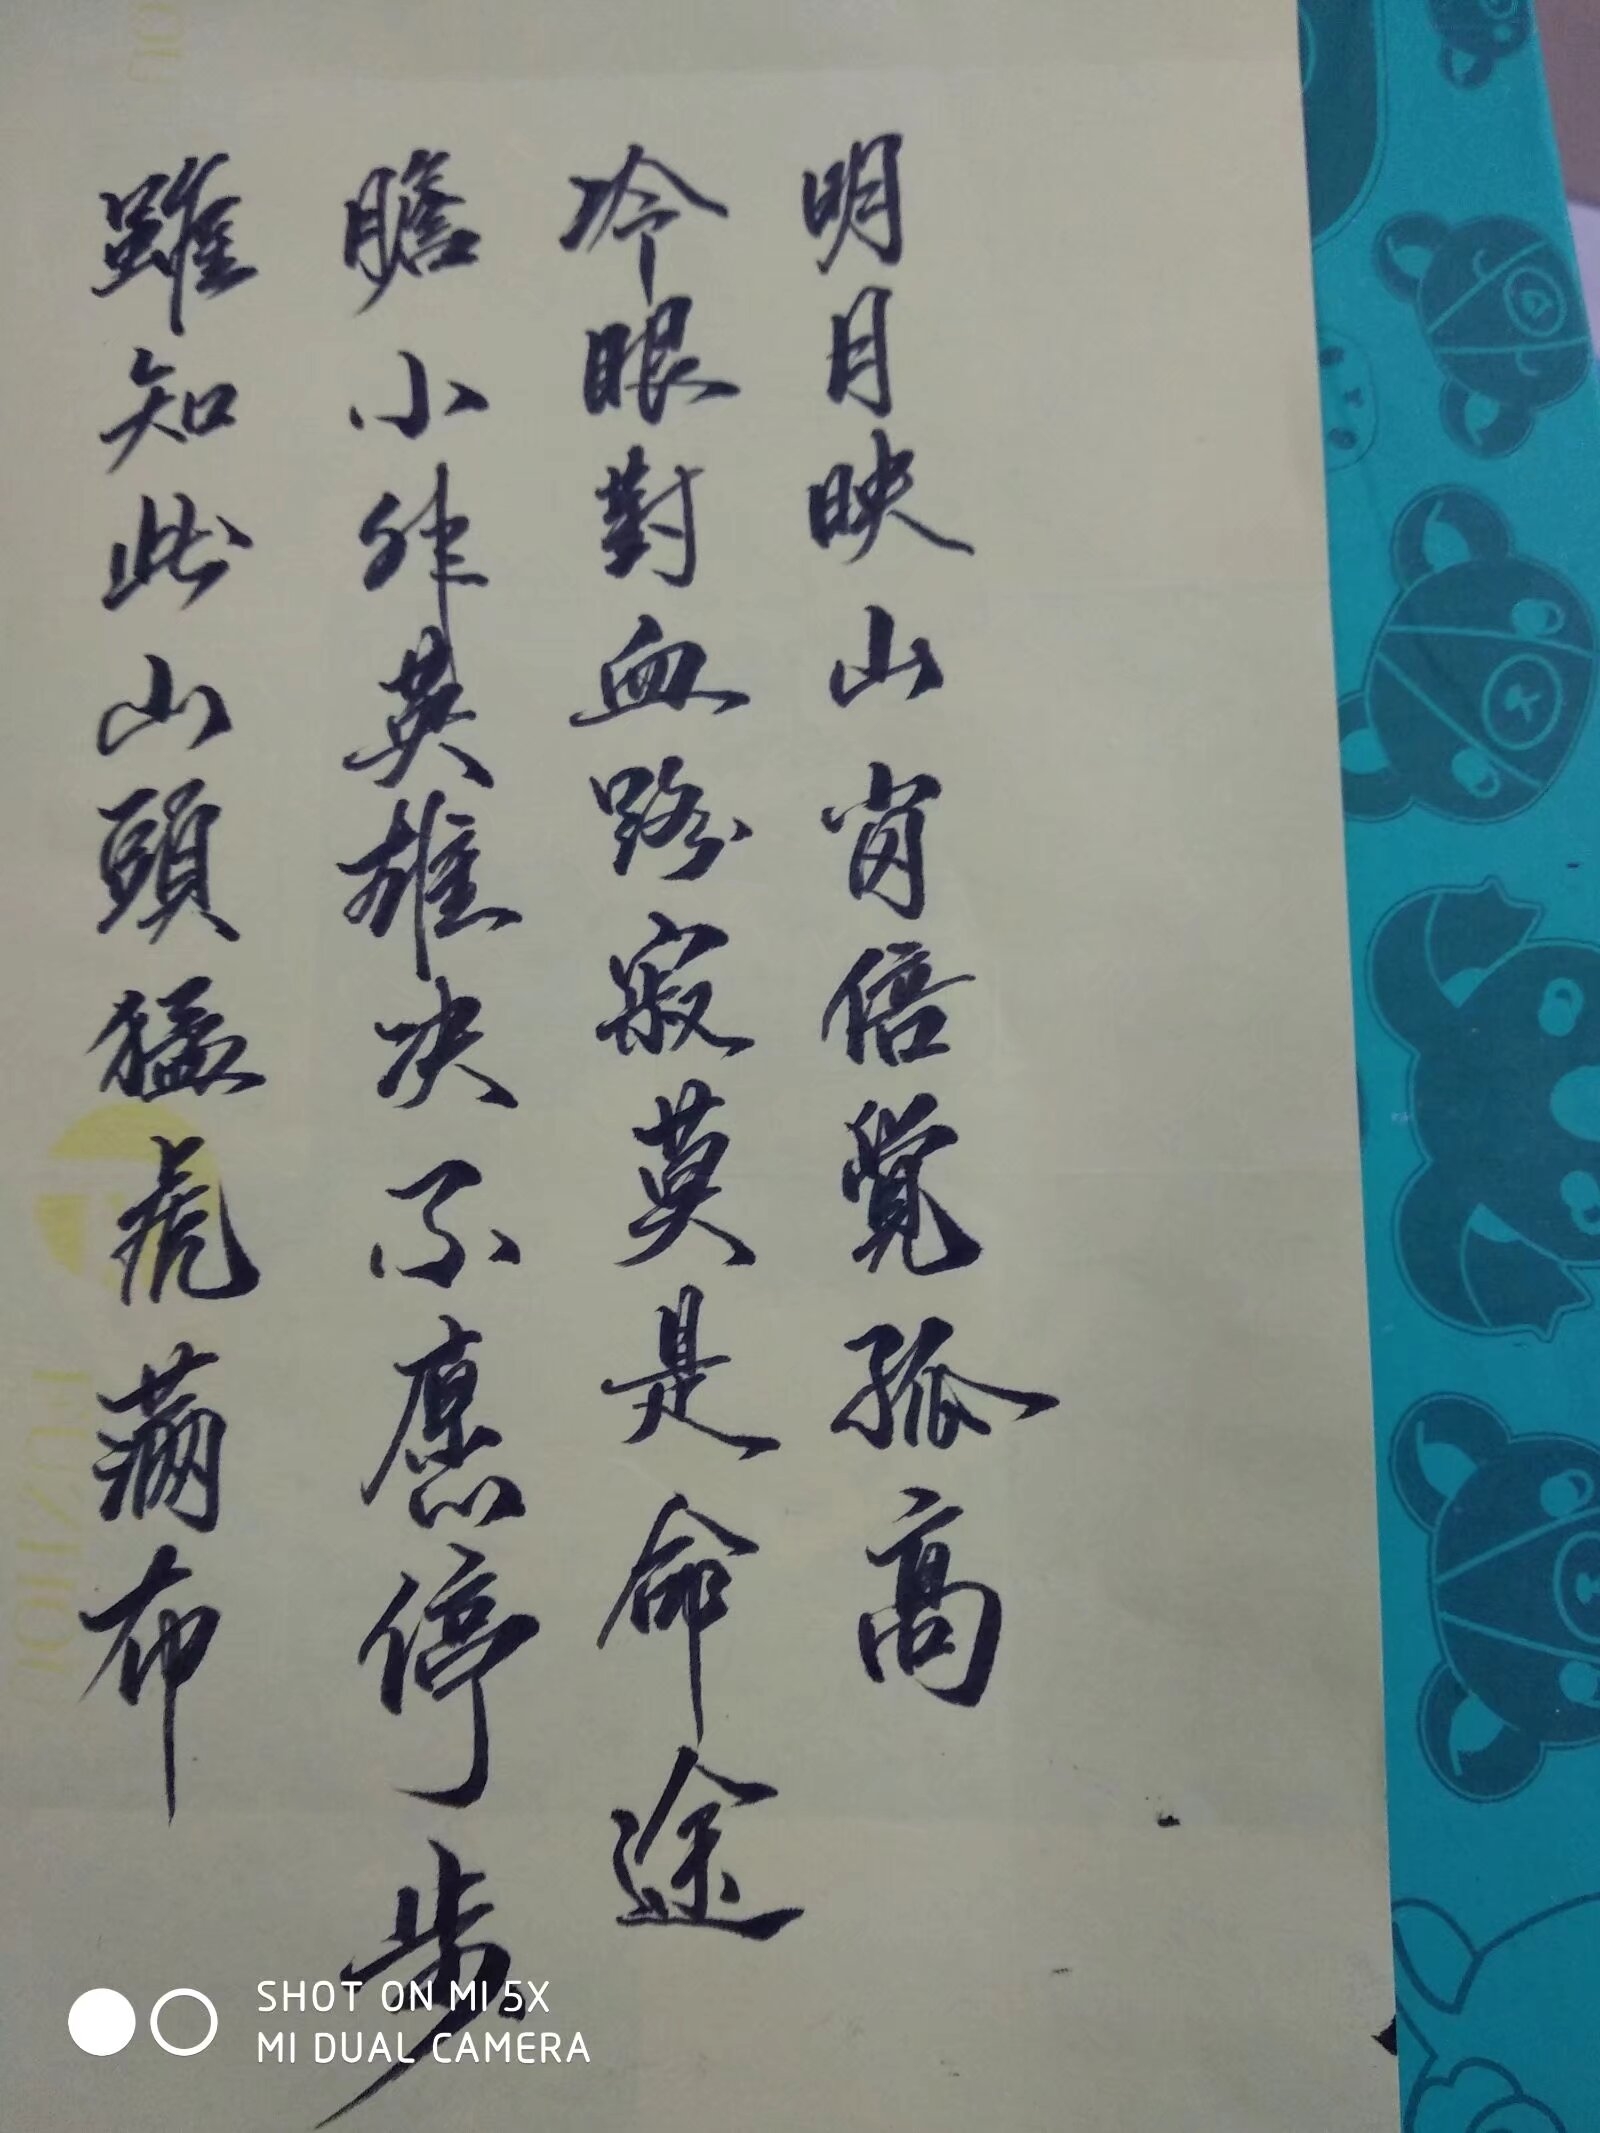 明月映山岗倍覺孤高
冷眼對血路寂莫是命途
膽小非英雄决不愿停步
雖知此山頭猛虎滿布
SHOT ON MI 5X
MI DUAL CAMERA